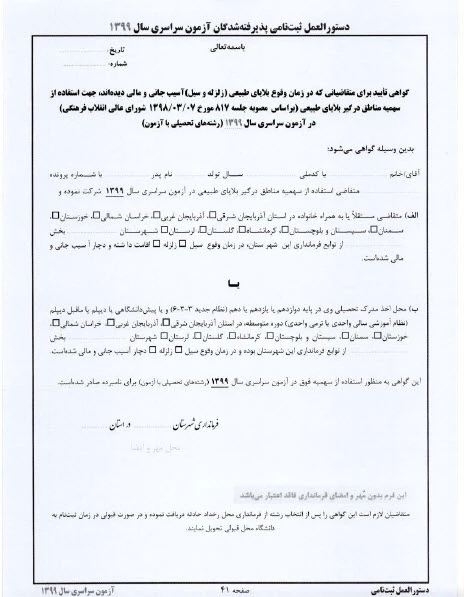 دستورالعمل ثبت‌نامی پذیرفته‌شدگان آزمون سراسری سال ۱۳۹۹
باسمه‌تعالی
تاریخ:
شماره:
گواهی تأیید برای متقاضیانی که در زمان وقوع بلایای طبیعی (زلزله و سیل) آسیب جانی و مالی دیده‌اند، جهت استفاده از
سهمیه مناطق درگیر بلایای طبیعی (براساس مصوبه جلسه ۸۱۷ مورخ ۱۳۹۸/۰۳/۰۷ شورای عالی انقلاب فرهنگی)
در آزمون سراسری سال ۱۳۹۹ (رشته‌های تحصیلی با آزمون)
بدین وسیله گواهی می‌شود:
آقای/خانم با کدملی سال تولد نام پدر با شماره پرونده
متقاضی استفاده از سهمیه مناطق درگیر بلایای طبیعی در آزمون سراسری سال ۱۳۹۹ شرکت نموده و
الف) متقاضی مستقلاً یا به همراه خانواده در استان آذربایجان شرقی□، آذربایجان غربی□، خراسان شمالی□، خوزستان□،
سمنان□، سیستان و بلوچستان□، کرمانشاه□، گلستان□، لرستان□ شهرستان بخش
از توابع فرمانداری این شهرستان، در زمان وقوع سیل □ زلزله □ اقامت داشته و دچار آسیب جانی و
مالی شده‌است.
یا
ب) محل اخذ مدرک تحصیلی وی در پایه دوازدهم یا یازدهم یا دهم (نظام جدید ۳-۳-۶) و یا پیش‌دانشگاهی یا دیپلم یا ماقبل دیپلم
(نظام آموزشی سالی واحدی یا ترمی واحدی) دوره متوسطه، در استان آذربایجان شرقی□، آذربایجان غربی□، خراسان شمالی□،
خوزستان□، سمنان□، سیستان و بلوچستان□، کرمانشاه□، گلستان□، لرستان□ شهرستان بخش
از توابع فرمانداری این شهرستان بوده و در زمان وقوع سیل □ زلزله □ دچار آسیب جانی و مالی شده‌است.
این گواهی به منظور استفاده از سهمیه فوق در آزمون سراسری سال ۱۳۹۹ (رشته‌های تحصیلی با آزمون) برای نامبرده صادر شده‌است.
فرمانداری شهرستان در استان
محل مهر و امضا
این فرم بدون مُهر و امضای فرمانداری فاقد اعتبار می‌باشد
متقاضیان لازم است این گواهی را پس از انتخاب رشته از فرمانداری محل رخداد حادثه دریافت نموده و در صورت قبولی در زمان ثبت‌نام به
دانشگاه محل قبولی تحویل نمایند.
دستورالعمل ثبت‌نامی
صفحه ۴۱
آزمون سراسری سال ۱۳۹۹